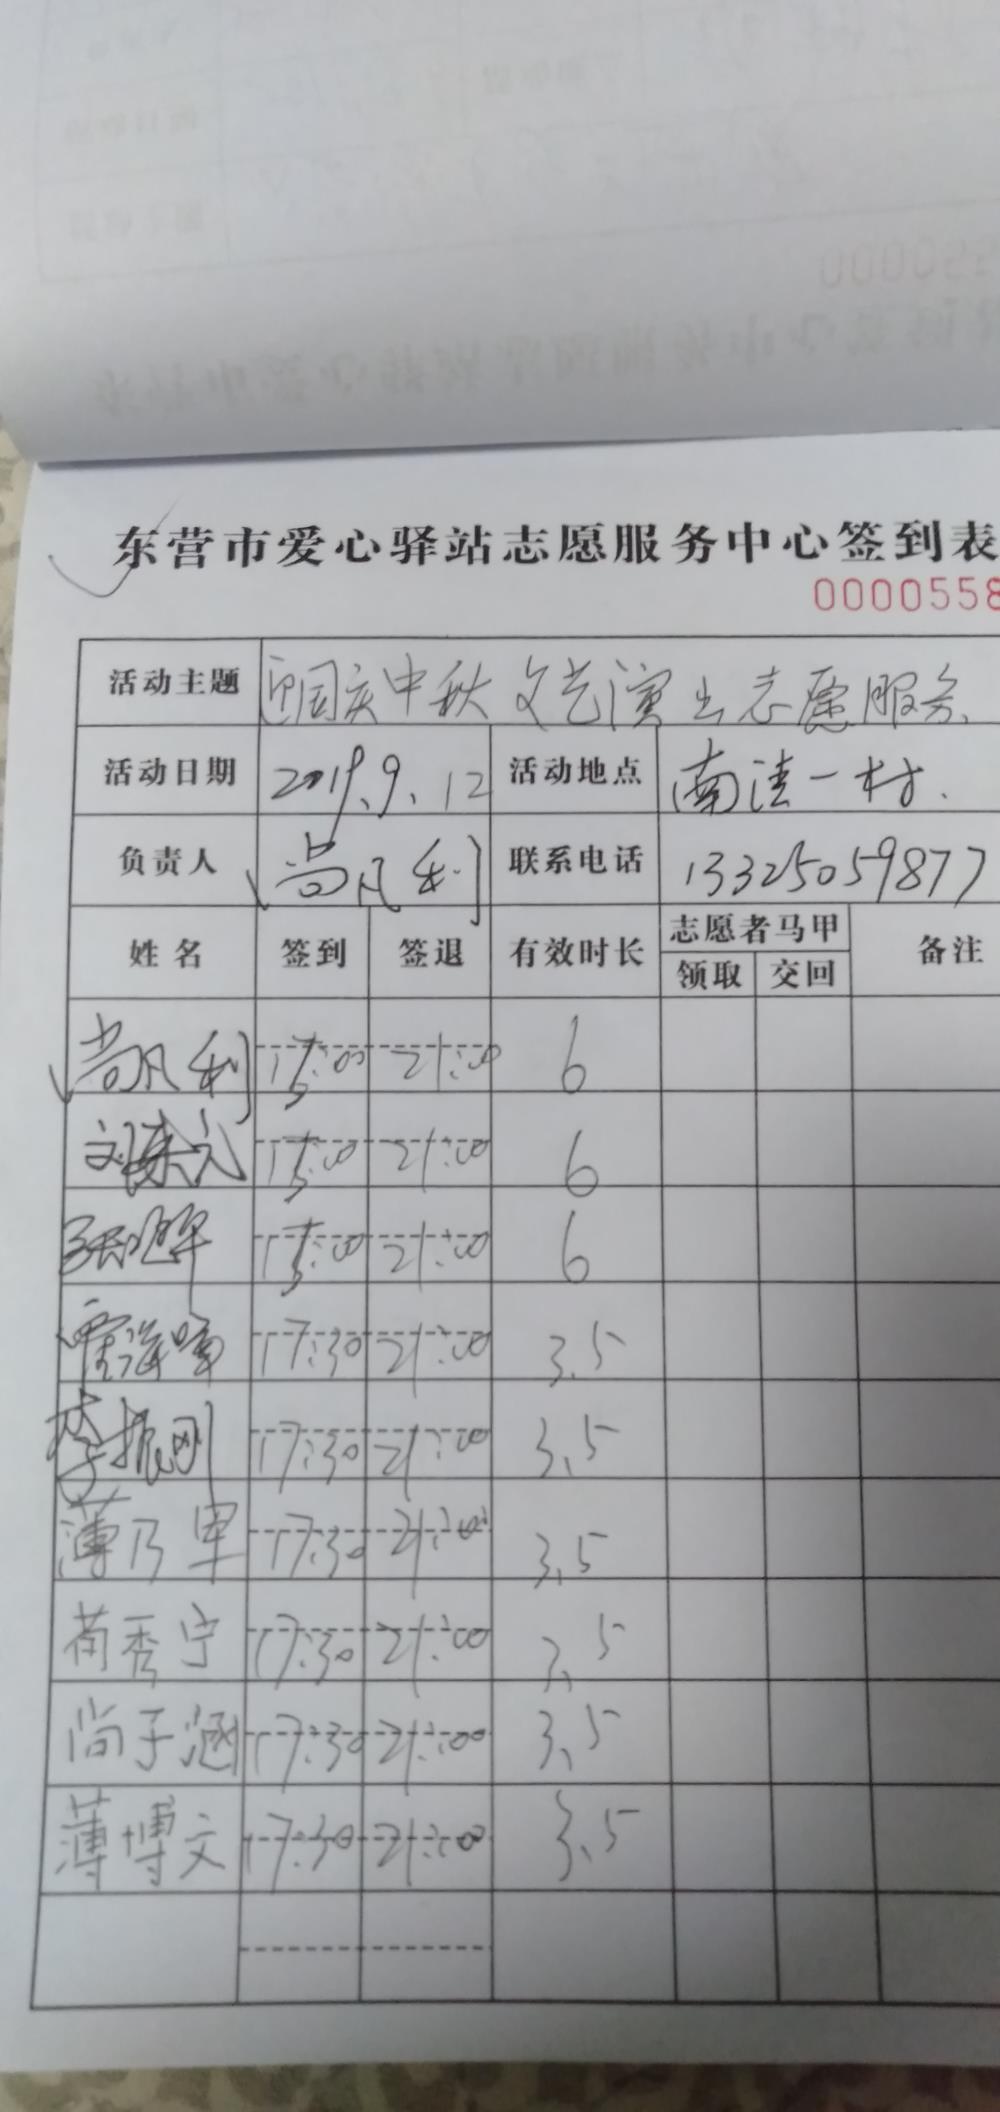 东营市爱心驿站志愿服务中心签到表
0000558
活动主题 迎国庆中秋文艺演出志愿服务
活动日期 2019.9.12 活动地点 南洼一村
负责人 尚凡利 联系电话 13325059877
姓名 签到 签退 有效时长 志愿者马甲 备注
领取 交回
尚凡利 15:00 21:00 6
15:00 21:00 6
15:00 21:00 6
霍海峰 17:30 21:00 3.5
李振刚 17:30 21:00 3.5
薄乃军 17:30 21:00 3.5
荀秀宁 17:30 21:00 3.5
尚子涵 17:30 21:00 3.5
薄博文 17:30 21:00 3.5